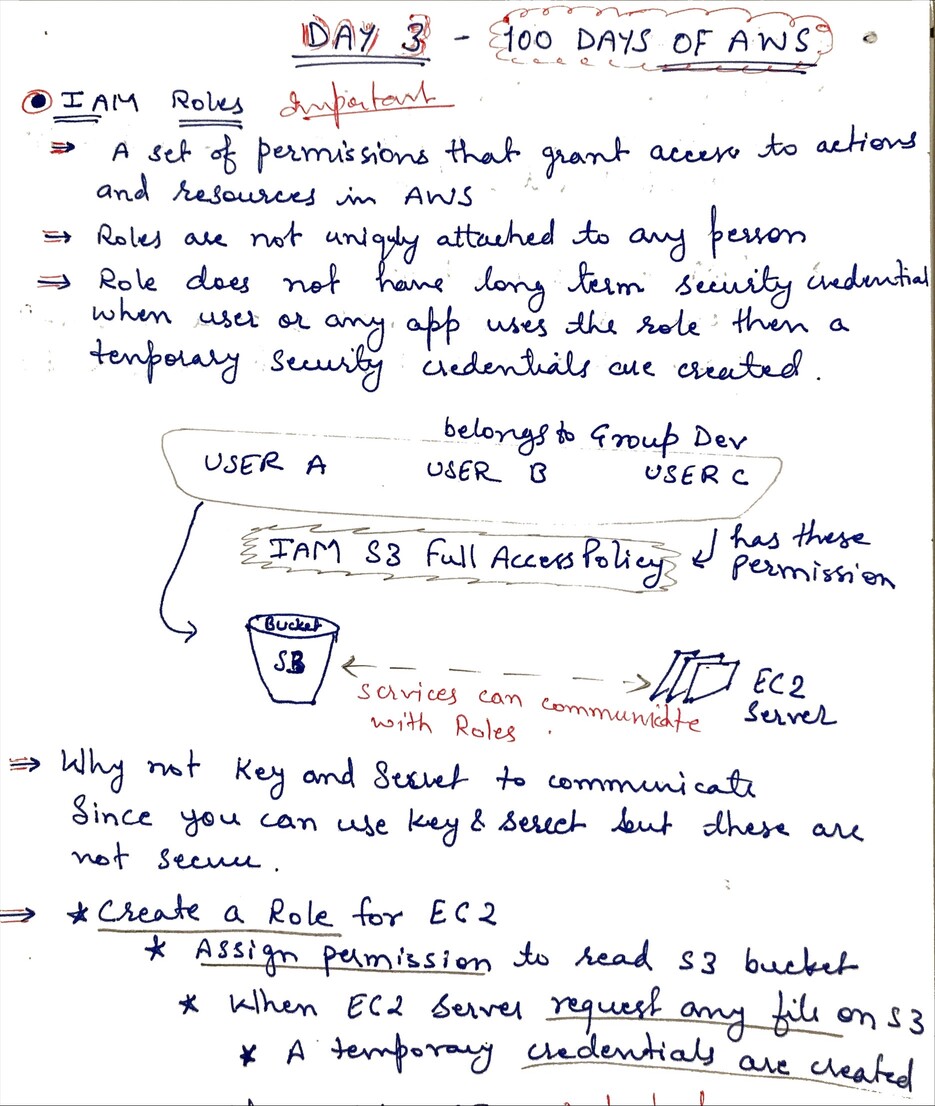 DAY 3 - 100 DAYS OF AWS
IAM Roles Important
⇒ A set of permissions that grant access to actions
and resources in AWS
⇒ Roles are not uniqly attached to any person
⇒ Role does not have long term security credential
when user or any app uses the role then a
temporary security credentials are created.
belongs to Group Dev
USER A USER B USER C
IAM S3 Full Access Policy
has these
permission
Bucket
SB
EC2
Server
services can communicate
with Roles.
⇒ Why not Key and Secret to communicate
Since you can use key & serect but these are
not secure.
⇒ * Create a Role for EC2
* Assign permission to read S3 bucket
* When EC2 server request any file on S3
* A temporary credentials are created